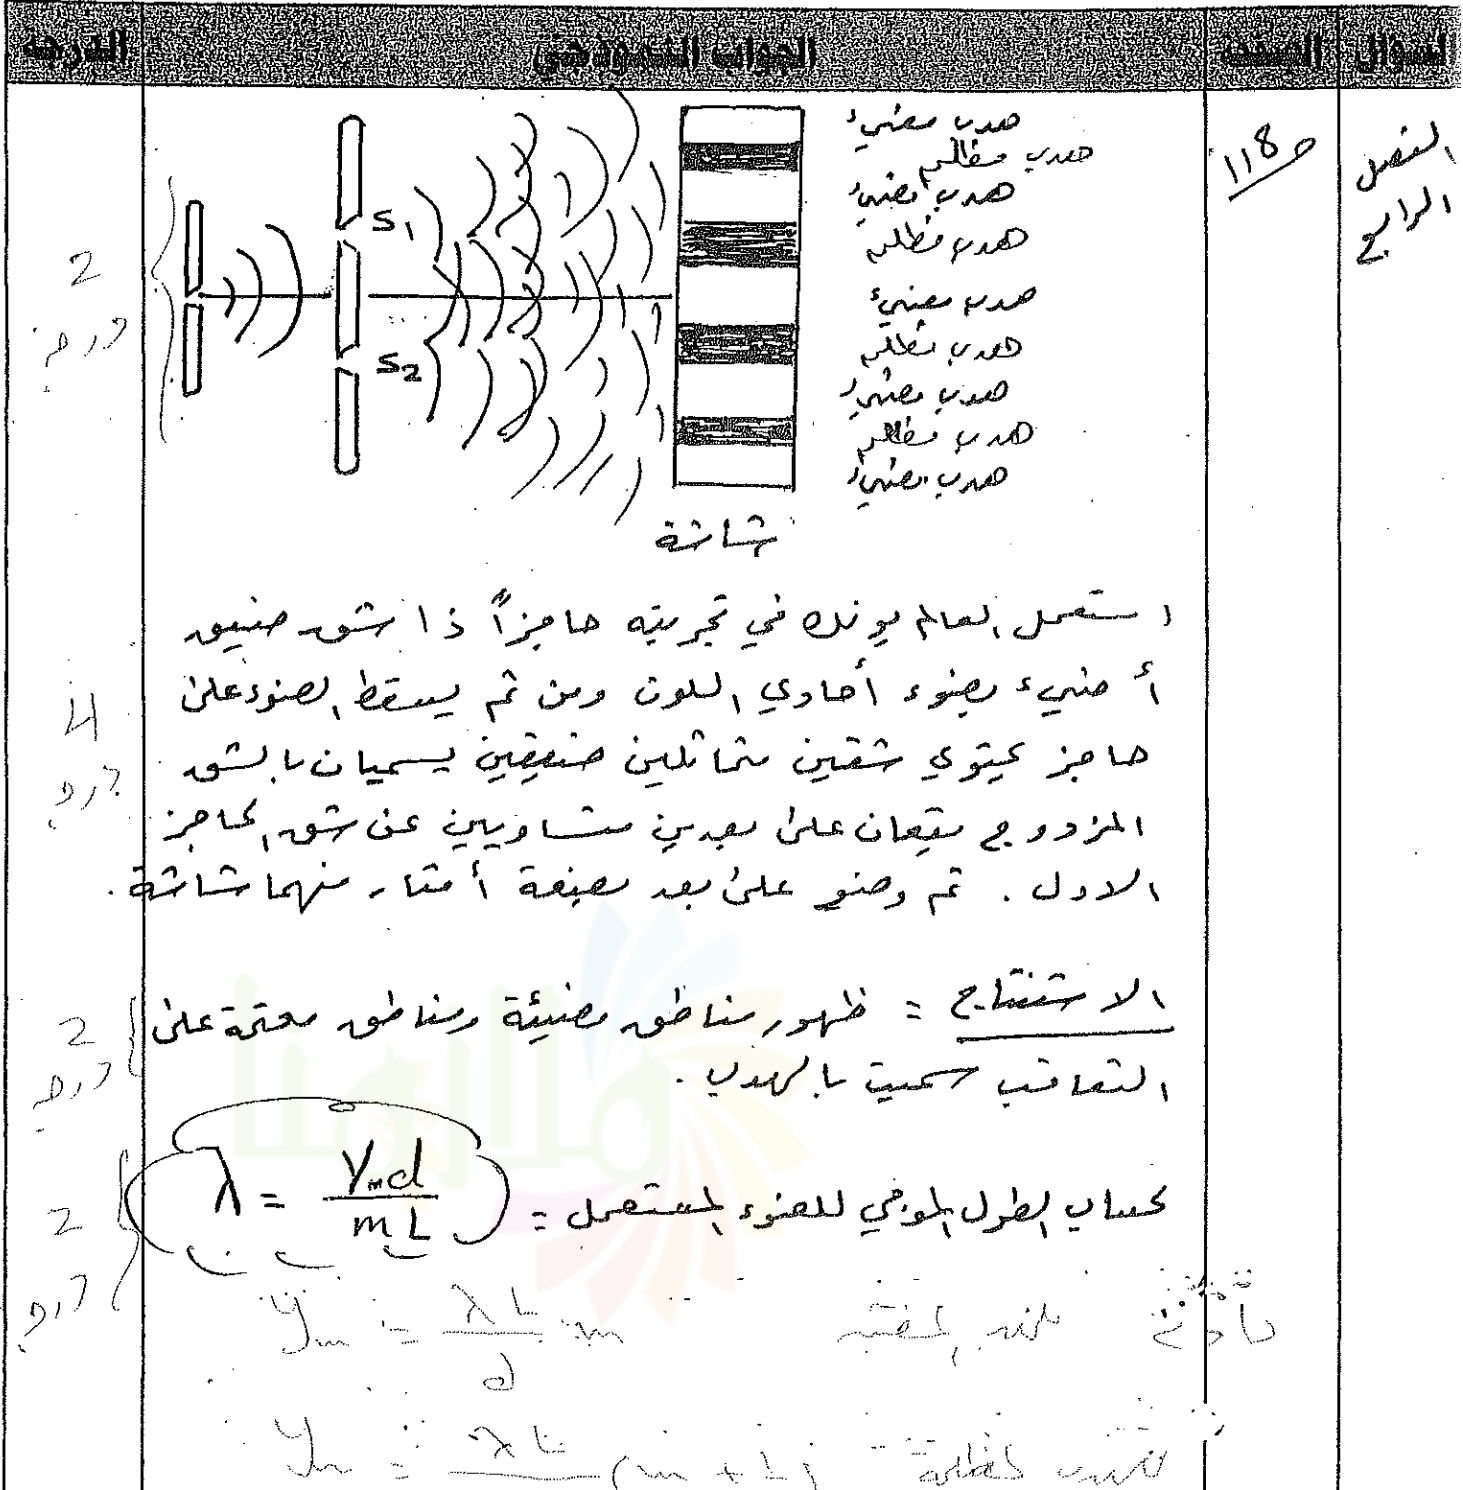 السؤال الصفحة الجواب النموذجي الدرجة
الفصل
الرابع
ص 118
هدب مضيء
هدب مظلم
هدب مضيء
هدب مظلم
هدب مضيء
هدب مظلم
هدب مضيء
هدب مظلم
هدب مضيء
S1
S2
شاشة
2
درجة
استعمل العالم يونك في تجربته حاجزاً ذا شق ضيق
أضيء بضوء أحادي اللون ومن ثم يسقط الضوء على
حاجز يحتوي شقين متماثلين ضيقين يسميان بالشق
المزدوج يقعان على بعدين متساويين عن شق الحاجز
الاول . ثم وضع على بعد بضعة أمتار منهما شاشة .
4
درجة
الاستنتاج = ظهور مناطق مضيئة ومناطق معتمة على
التعاقب سميت بالهدب .
2
درجة
لحساب الطول الموجي للضوء المستعمل = λ = Ymd / mL
2
درجة
ym = λL/d m
ym = λL (m + 1